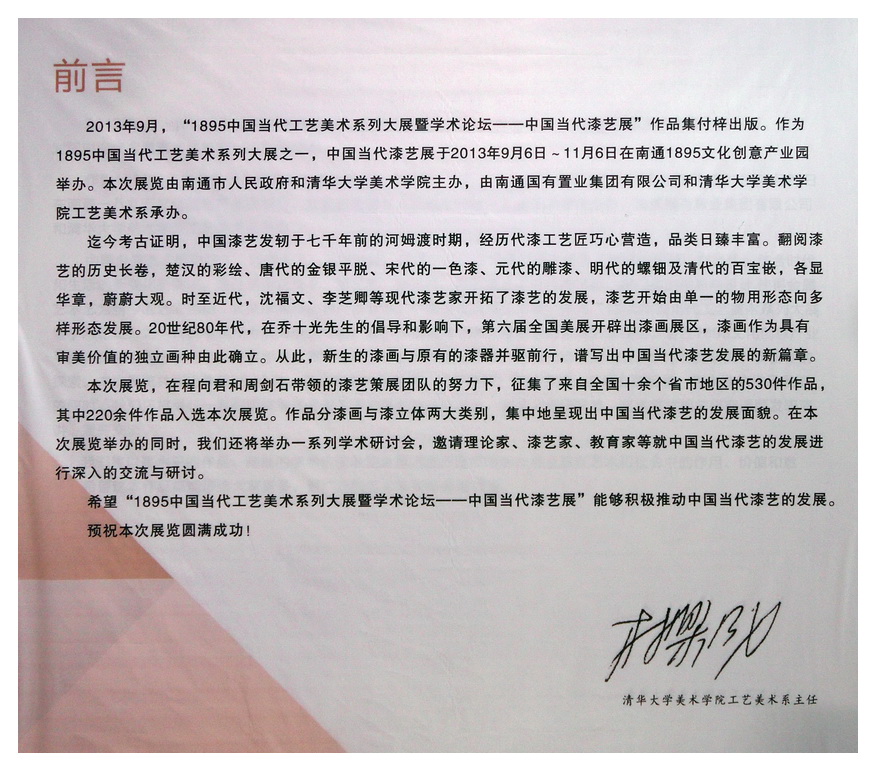 前言
2013年9月，“1895中国当代工艺美术系列大展暨学术论坛——中国当代漆艺展”作品集付梓出版。作为
1895中国当代工艺美术系列大展之一，中国当代漆艺展于2013年9月6日~11月6日在南通1895文化创意产业园
举办。本次展览由南通市人民政府和清华大学美术学院主办，由南通国有置业集团有限公司和清华大学美术学
院工艺美术系承办。
迄今考古证明，中国漆艺发轫于七千年前的河姆渡时期，经历代漆工艺匠巧心营造，品类日臻丰富。翻阅漆
艺的历史长卷，楚汉的彩绘、唐代的金银平脱、宋代的一色漆、元代的雕漆、明代的螺钿及清代的百宝嵌，各显
华章，蔚蔚大观。时至近代，沈福文、李芝卿等现代漆艺家开拓了漆艺的发展，漆艺开始由单一的物用形态向多
样形态发展。20世纪80年代，在乔十光先生的倡导和影响下，第六届全国美展开辟出漆画展区，漆画作为具有
审美价值的独立画种由此确立。从此，新生的漆画与原有的漆器并驱前行，谱写出中国当代漆艺发展的新篇章。
本次展览，在程向君和周剑石带领的漆艺策展团队的努力下，征集了来自全国十余个省市地区的530件作品，
其中220余件作品入选本次展览。作品分漆画与漆立体两大类别，集中地呈现出中国当代漆艺的发展面貌。在本
次展览举办的同时，我们还将举办一系列学术研讨会，邀请理论家、漆艺家、教育家等就中国当代漆艺的发展进
行深入的交流与研讨。
希望“1895中国当代工艺美术系列大展暨学术论坛——中国当代漆艺展”能够积极推动中国当代漆艺的发展。
预祝本次展览圆满成功！
清华大学美术学院工艺美术系主任